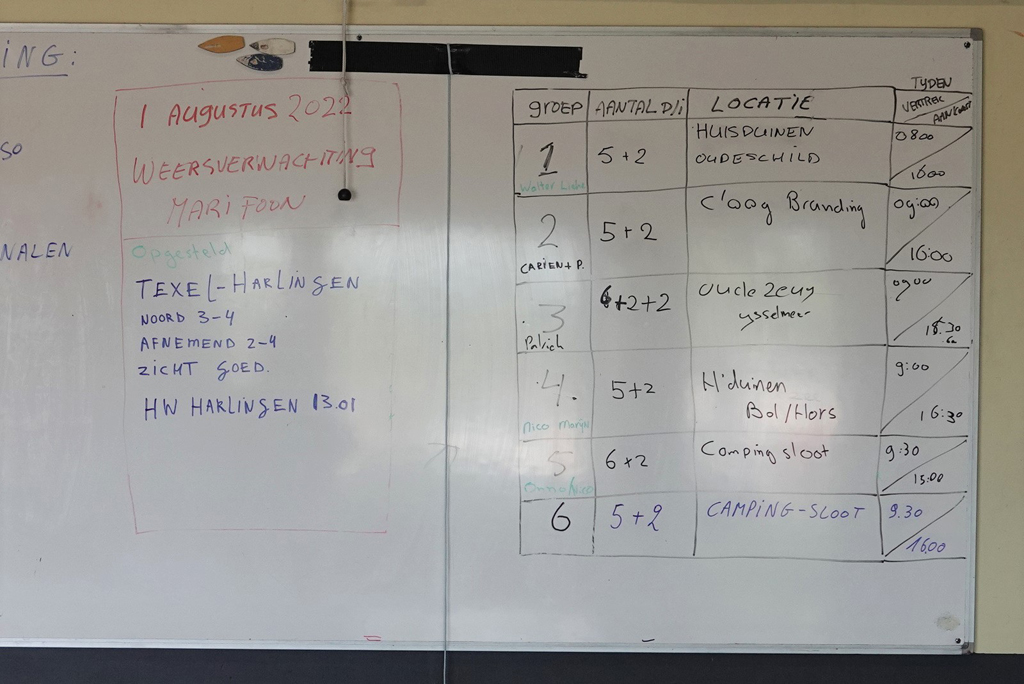 ING:
SO
NALEN
1 AUGUSTUS 2022
WEERSVERWACHTING
MARIFOON
Opgesteld
TEXEL-HARLINGEN
NOORD 3-4
AFNEMEND 2-4
ZICHT GOED.
HW HARLINGEN 13.01
TYDEN
GROEP AANTAL D/i LOCATIE VERTREK AANKOMST
1 5+2 HUISDUINEN 0800
OUDESCHILD 1600
Walter
2 5+2 C'oog Branding 09:00
CARIEN + P. 16:00
3 6+2+2 09:00
Patrick ysselmeer 18.30
4. 5+2 H'duinen 9:00
Nico Bol/Hors 16:30
5 6+2 Camping sloot 9:30
15:00
6 5+2 CAMPING-SLOOT 9.30
16.00